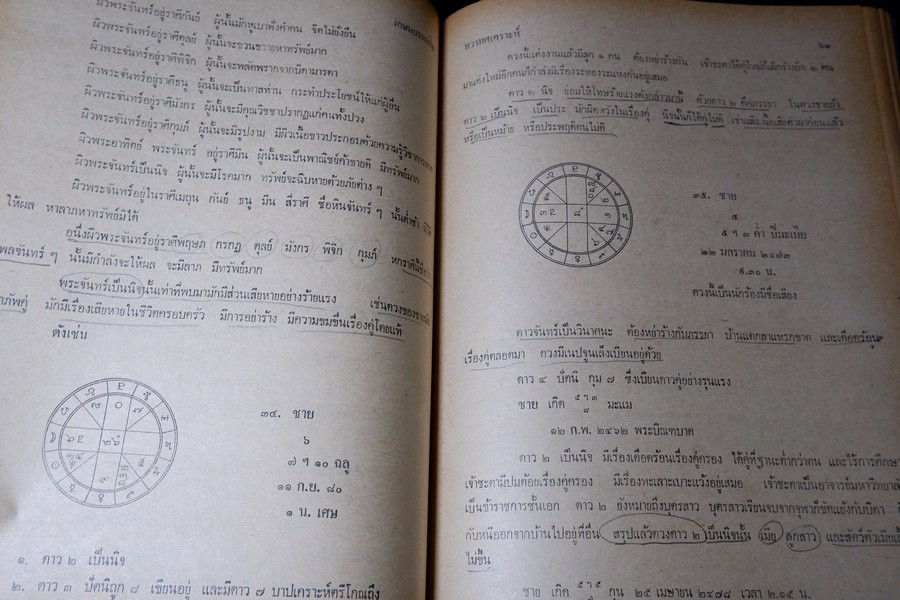 ผิวพระจันทร์อยู่ราศีกันย์ ผู้นั้นมักหูเบาฟังคำคน จิตไม่ยั่งยืน
ผิวพระจันทร์อยู่ราศีตุลย์ ผู้นั้นจะขวนขวายหาทรัพย์มาก
ผิวพระจันทร์อยู่ราศีพิจิก ผู้นั้นจะพลัดพรากจากบิดามารดา
ผิวพระจันทร์อยู่ราศีธนู ผู้นั้นจะเป็นทาสท่าน กระทำประโยชน์ให้แก่ผู้อื่น
ผิวพระจันทร์อยู่ราศีมังกร ผู้นั้นจะมีคุณวิชชาปรากฏแก่คนทั้งปวง
ผิวพระจันทร์อยู่ราศีกุมภ์ ผู้นั้นจะมีรูปงาม มีผิวเนื้อขาวประกอบด้วยความรู้
ผิวพระอาทิตย์ พระจันทร์ อยู่ราศีมีน ผู้นั้นจะเป็นพาณิชย์ค้าขายดี มีทรัพย์มาก
ผิวพระจันทร์เป็นนิจ ผู้นั้นจะมีโรคมาก ทรัพย์จะฉิบหายด้วยภัยต่าง ๆ
ผิวพระจันทร์อยู่ในราศีเมถุน กันย์ ธนู มีน สี่ราศี ชื่อหินจันทร์ ๆ นั้นต่ำช้า
ให้ผล หาลาภหาทรัพย์มิได้
อนึ่งผิวพระจันทร์อยู่ราศีพฤษภ กรกฎ ตุลย์ มังกร พิจิก กุมภ์ หกราศีนี้
พลจันทร์ ๆ นั้นมีกำลังจะให้ผล จะมีลาภ มีทรัพย์มาก
พระจันทร์เป็นนิจนั้นเท่าที่พบมามักมีส่วนเสียหายอย่างร้ายแรง เช่นดวงของชาย
ภัพคู่ มักมีเรื่องเสียหายในชีวิตครอบครัว มีการอย่าร้าง มีความขมขื่นเรื่องคู่โดยแท้
ดังเช่น
๓๔. ชาย
๖
๗ ฯ ๑๐ ฉลู
๑๑ ก.ย. ๘๐
๑ น. เศษ
๑. ดาว ๒ เป็นนิจ
๒. ดาว ๓ บัตนิถูก ๘ เขียนอยู่ และมีดาว ๗ บาปเคราะห์ตรีโกณถึง
ทวาทศเคราะห์ ๖๑
ดวงนี้แต่งงานแล้วมีลูก ๑ คน ต้องหย่าร้างกัน เจ้าชะตาได้คู่ใหม่ก็เลิกร้างอีก ๒ คน
มาแต่งใหม่อีกคนก็กำลังมีเรื่องระหองระแหงกันอยู่เสมอ
ดาว ๒ นิจ ย่อมให้โทษร้ายแรงดังกล่าวมานี้ ด้วยดาว ๒ คือภรรยา ในดวงชายถ้า
ดาว ๒ เป็นนิจ เป็นประ มักผิดหวังในเรื่องคู่ นิจนั้นก็ได้คู่ไม่ดี เช่นเสียเนื้อเสียตัวมาก่อนแล้ว
หรือเป็นหม้าย หรือประพฤติตนไม่ดี
๓๕. ชาย
๕
๕ ฯ ๓ ค่ำ ปีมะเมีย
๒๒ มกราคม ๒๔๗๓
๙.๓๐ น.
ดวงนี้เป็นนักร้องมีชื่อเสียง
ดาวจันทร์เป็นวินาศนะ ต้องหย่าร้างกับภรรยา บ้านแตกสาแหรกขาด และเดือดร้อน
เรื่องคู่ตลอดมา ดวงมีเนปจูนเล็งเบียนอยู่ด้วย
ดาว ๔ บัตนิ กุม ๗ ซึ่งเบียนดาวคู่อย่างรุนแรง
ชาย เกิด ๕ ฯ ๓ ๘ มะแม
๑๒ ก.พ. ๒๔๖๒ พระบิณฑบาต
ดาว ๒ เป็นนิจ มีเรื่องเดือดร้อนเรื่องคู่ครอง ได้คู่ที่ฐานะต่ำกว่าตน และไร้การศึกษา
เจ้าชะตามีปมด้อยเรื่องคู่ครอง มีเรื่องทะเลาะเบาะแว้งอยู่เสมอ เจ้าชะตาเป็นอาจารย์มหาวิทยาลัย
เป็นข้าราชการชั้นเอก ดาว ๒ ยังหมายถึงบุตรสาว บุตรสาวเรียนจบจากจุฬาก็ขัดแย้งกับบิดา
กับหนีออกจากบ้านไปอยู่ที่อื่น สรุปแล้วดวงดาว ๒ เป็นนิจนั้น เมีย ลูกสาว และสัตว์ตัวเมีย
ไม่ขึ้น
ชาย เกิด ๕ ฯ ๕ กุน ๒๕ เมษายน ๒๔๗๘ เวลา ๒.๑๕ น.